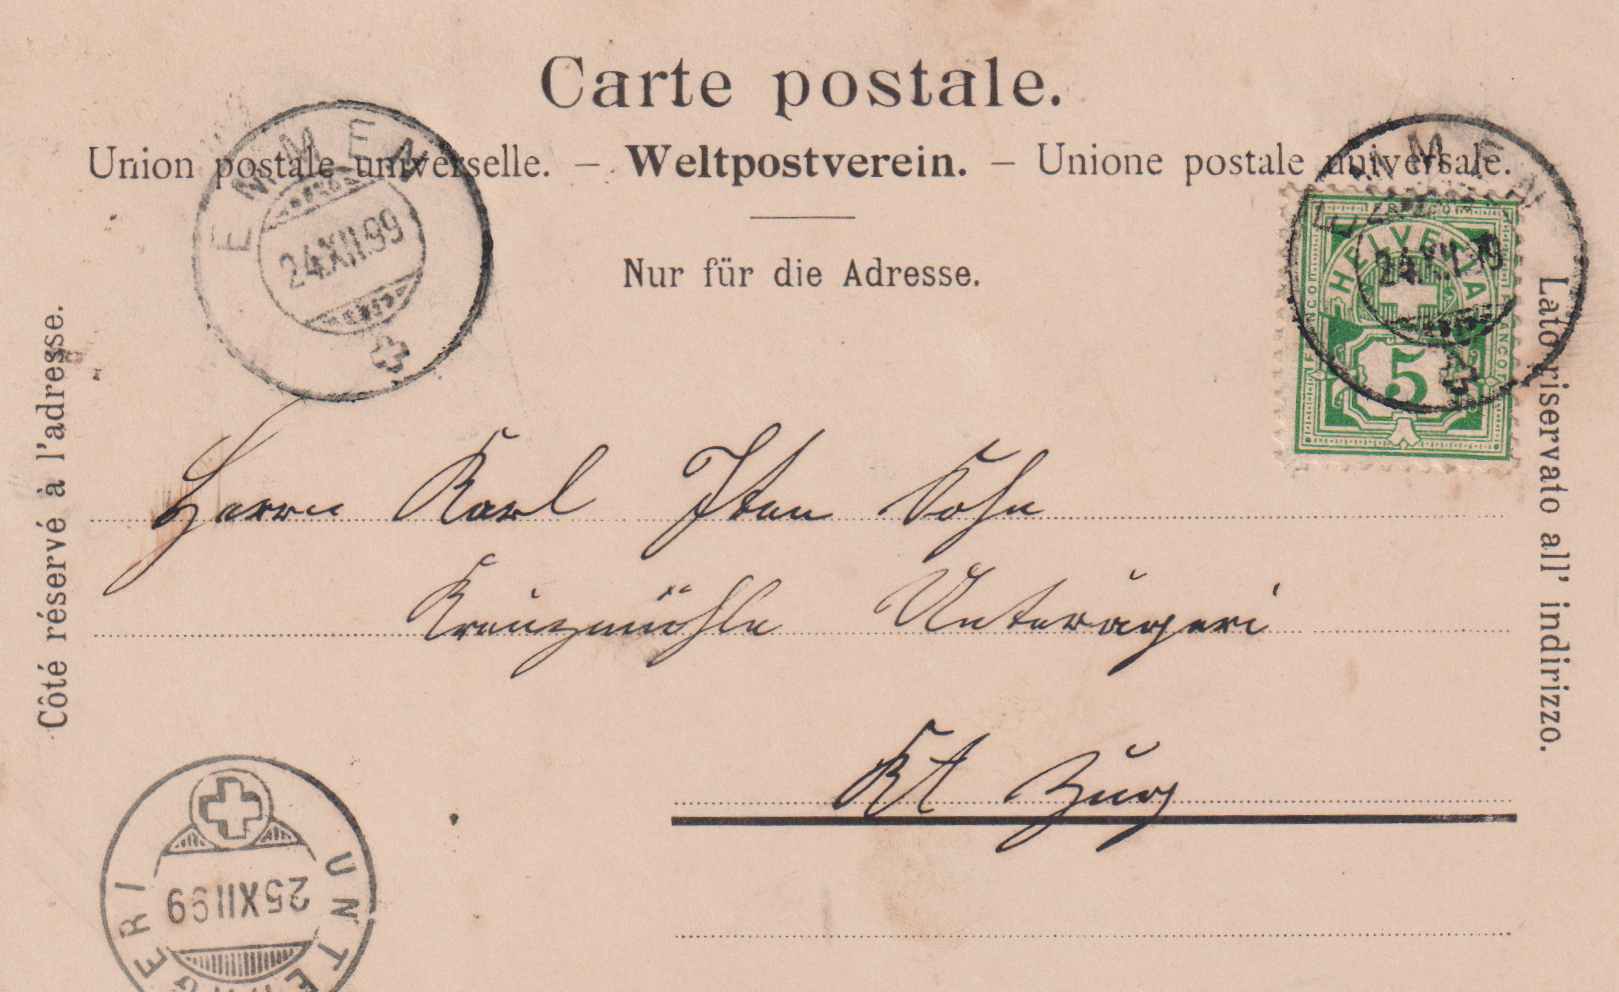 Carte postale.
Union postale universelle. – Weltpostverein. – Unione postale universale.
Nur für die Adresse.
Côté réservé à l'adresse.
Lato riservato all' indirizzo.
EMMEN
24.XII.99
EMMEN
24.XII.99
FRANCO
HELVETIA
FRANCO
FRANCO
5
Herrn Karl Iten Sohn
Kreuzmühle Unterägeri
Kt Zug
UNTERÄGERI
25.XII.99